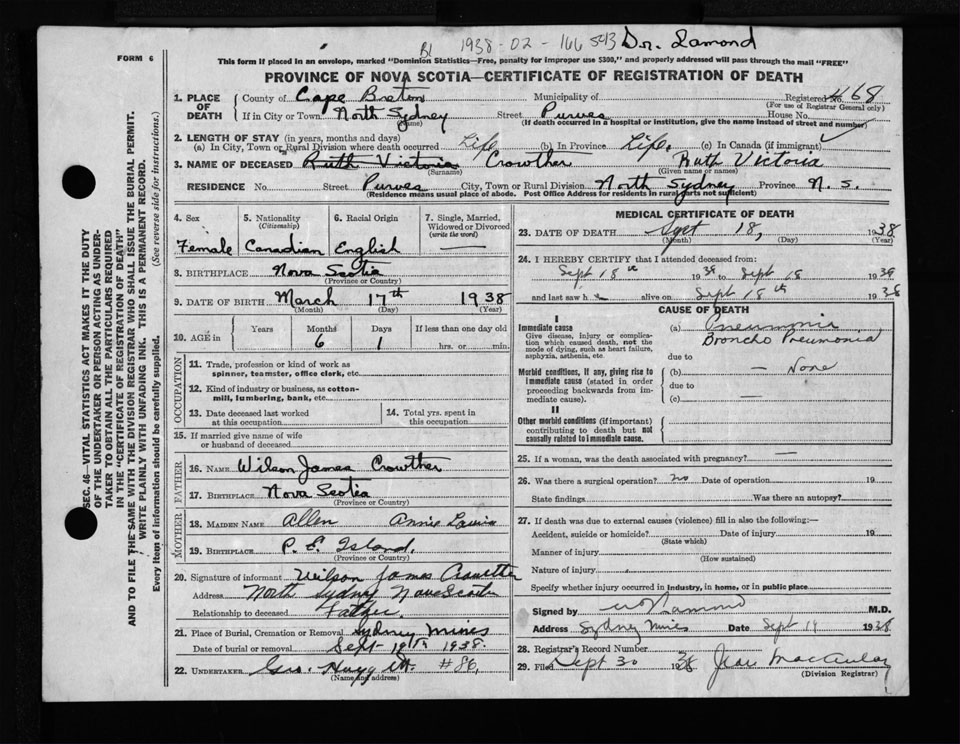 1938-02-166543 Dr. Lamond
FORM 6
This form if placed in an envelope, marked "Dominion Statistics—Free, penalty for improper use $300," and properly addressed will pass through the mail "FREE"
PROVINCE OF NOVA SCOTIA—CERTIFICATE OF REGISTRATION OF DEATH
SEC. 46—VITAL STATISTICS ACT MAKES IT THE DUTY
OF THE UNDERTAKER OR PERSON ACTING AS UNDER-
TAKER TO OBTAIN ALL THE PARTICULARS REQUIRED
IN THE "CERTIFICATE OF REGISTRATION OF DEATH"
AND TO FILE THE SAME WITH THE DIVISION REGISTRAR WHO SHALL ISSUE THE BURIAL PERMIT.
WRITE PLAINLY WITH UNFADING INK. THIS IS A PERMANENT RECORD.
Every item of information should be carefully supplied. (See reverse side for instructions.)
1. PLACE OF DEATH County of Cape Breton Municipality of Registered No. 468
(For use of Registrar General only)
If in City or Town North Sydney Street Purves House No.
(Name) (If death occurred in a hospital or institution, give the name instead of street and number)
2. LENGTH OF STAY (in years, months and days)
(a) In City, Town or Rural Division where death occurred Life (b) In Province Life. (c) In Canada (if immigrant)
3. NAME OF DECEASED Ruth Victoria Crowther Ruth Victoria
(Surname) (Given name or names)
RESIDENCE No. Street Purves City, Town or Rural Division North Sydney Province N. S.
(Residence means usual place of abode. Post Office Address for residents in rural parts not sufficient)
4. Sex 5. Nationality 6. Racial Origin 7. Single, Married,
(Citizenship) Widowed or Divorced
(write the word)
Female Canadian English —
8. BIRTHPLACE Nova Scotia
(Province or Country)
9. DATE OF BIRTH March 17th 1938
(Month) (Day) (Year)
10. AGE in Years Months Days If less than one day old
6 1 hrs. or min.
OCCUPATION
11. Trade, profession or kind of work as
spinner, teamster, office clerk, etc.
12. Kind of industry or business, as cotton-
mill, lumbering, bank, etc.
13. Date deceased last worked 14. Total yrs. spent in
at this occupation this occupation
15. If married give name of wife
or husband of deceased
FATHER
16. NAME Wilson James Crowther
17. BIRTHPLACE Nova Scotia
(Province or Country)
MOTHER
18. MAIDEN NAME Allen Annie
19. BIRTHPLACE P. E. Island.
(Province or Country)
20. Signature of informant Wilson James Crowther
Address North Sydney Nova Scotia
Relationship to deceased Father.
21. Place of Burial, Cremation or Removal Sydney Mines
Date of burial or removal Sept 19th 1938.
22. UNDERTAKER Geo. #86,
(Name and address)
MEDICAL CERTIFICATE OF DEATH
23. DATE OF DEATH Sept 18, 1938
(Month) (Day) (Year)
24. I HEREBY CERTIFY that I attended deceased from:
Sept 18th 1938 to Sept 18 1938
and last saw h alive on Sept 18th 1938
CAUSE OF DEATH
I
Immediate cause (a) Pneumonia
Give disease, injury or complica- Broncho Pneumonia
tion which caused death, not the
mode of dying, such as heart failure,
asphyxia, asthenia, etc. due to
Morbid conditions, if any, giving rise to (b) — None
immediate cause (stated in order due to
proceeding backwards from im-
mediate cause). (c) —
II
Other morbid conditions (if important)
contributing to death but not
causally related to immediate cause.
25. If a woman, was the death associated with pregnancy? —
26. Was there a surgical operation? no Date of operation 19
State findings Was there an autopsy?
27. If death was due to external causes (violence) fill in also the following:—
Accident, suicide or homicide? Date of injury 19
(State which)
Manner of injury
(How sustained)
Nature of injury
Specify whether injury occurred in industry, in home, or in public place
Signed by Lamond M.D.
Address Sydney Mines Date Sept 19 1938
28. Registrar's Record Number
29. Filed Sept 30 1938 Jean MacAulay
(Division Registrar)